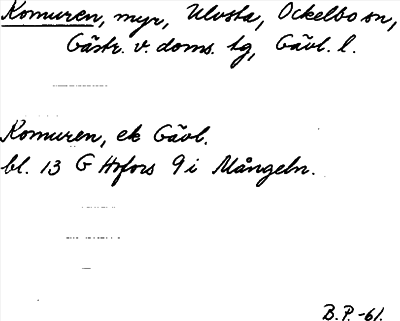 Komuren, myr, Ulvsta, Ockelbo sn,
Gästr. v. doms. tg, Gävl. l.
Komuren, ek Gävl.
bl. 13 G Hofors 9 i Mångeln.
B.P. -61.